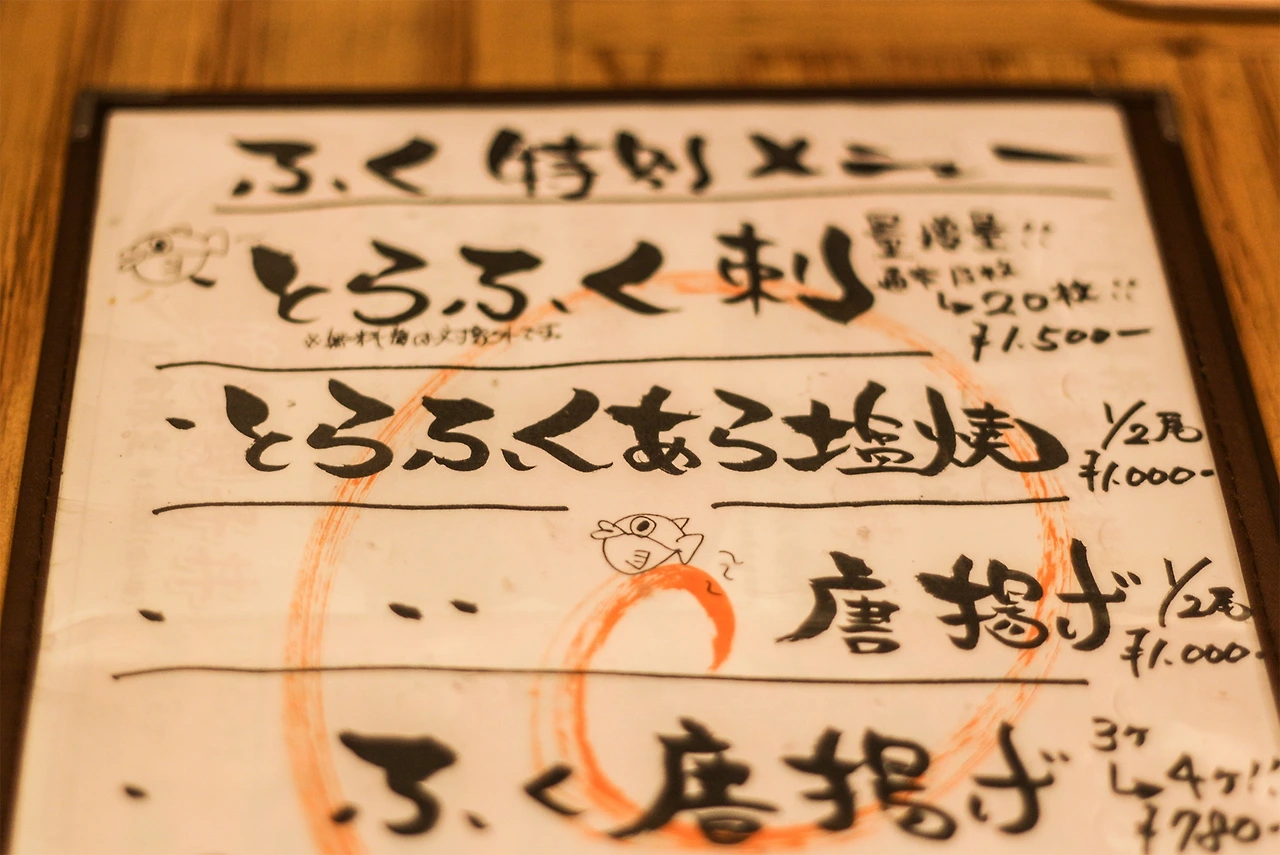 ふく 特別メニュー
とらふく刺
量増量!!
通常13枚
↳20枚!!
¥1.500-
・とらふくあら塩焼
1/2尾
¥1.000-
・ 〃 唐揚げ
1/2尾
¥1.000-
・ふく唐揚げ
3ヶ
↳4ヶ!!
¥780-